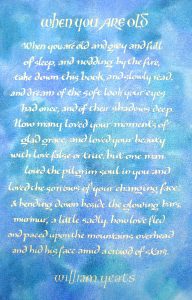 when you are old
When you are old and grey and full
of sleep, and nodding by the fire,
take down this book, and slowly read,
and dream of the soft look your eyes
had once, and of their shadows deep.
How many loved your moments of
glad grace, and loved your beauty
with love false or true, but one man
loved the pilgrim soul in you and
loved the sorrows of your changing face.
& bending down beside the glowing bars,
murmur, a little sadly, how love fled
and paced upon the mountains overhead
and hid his face amid a crowd of stars.
william yeats